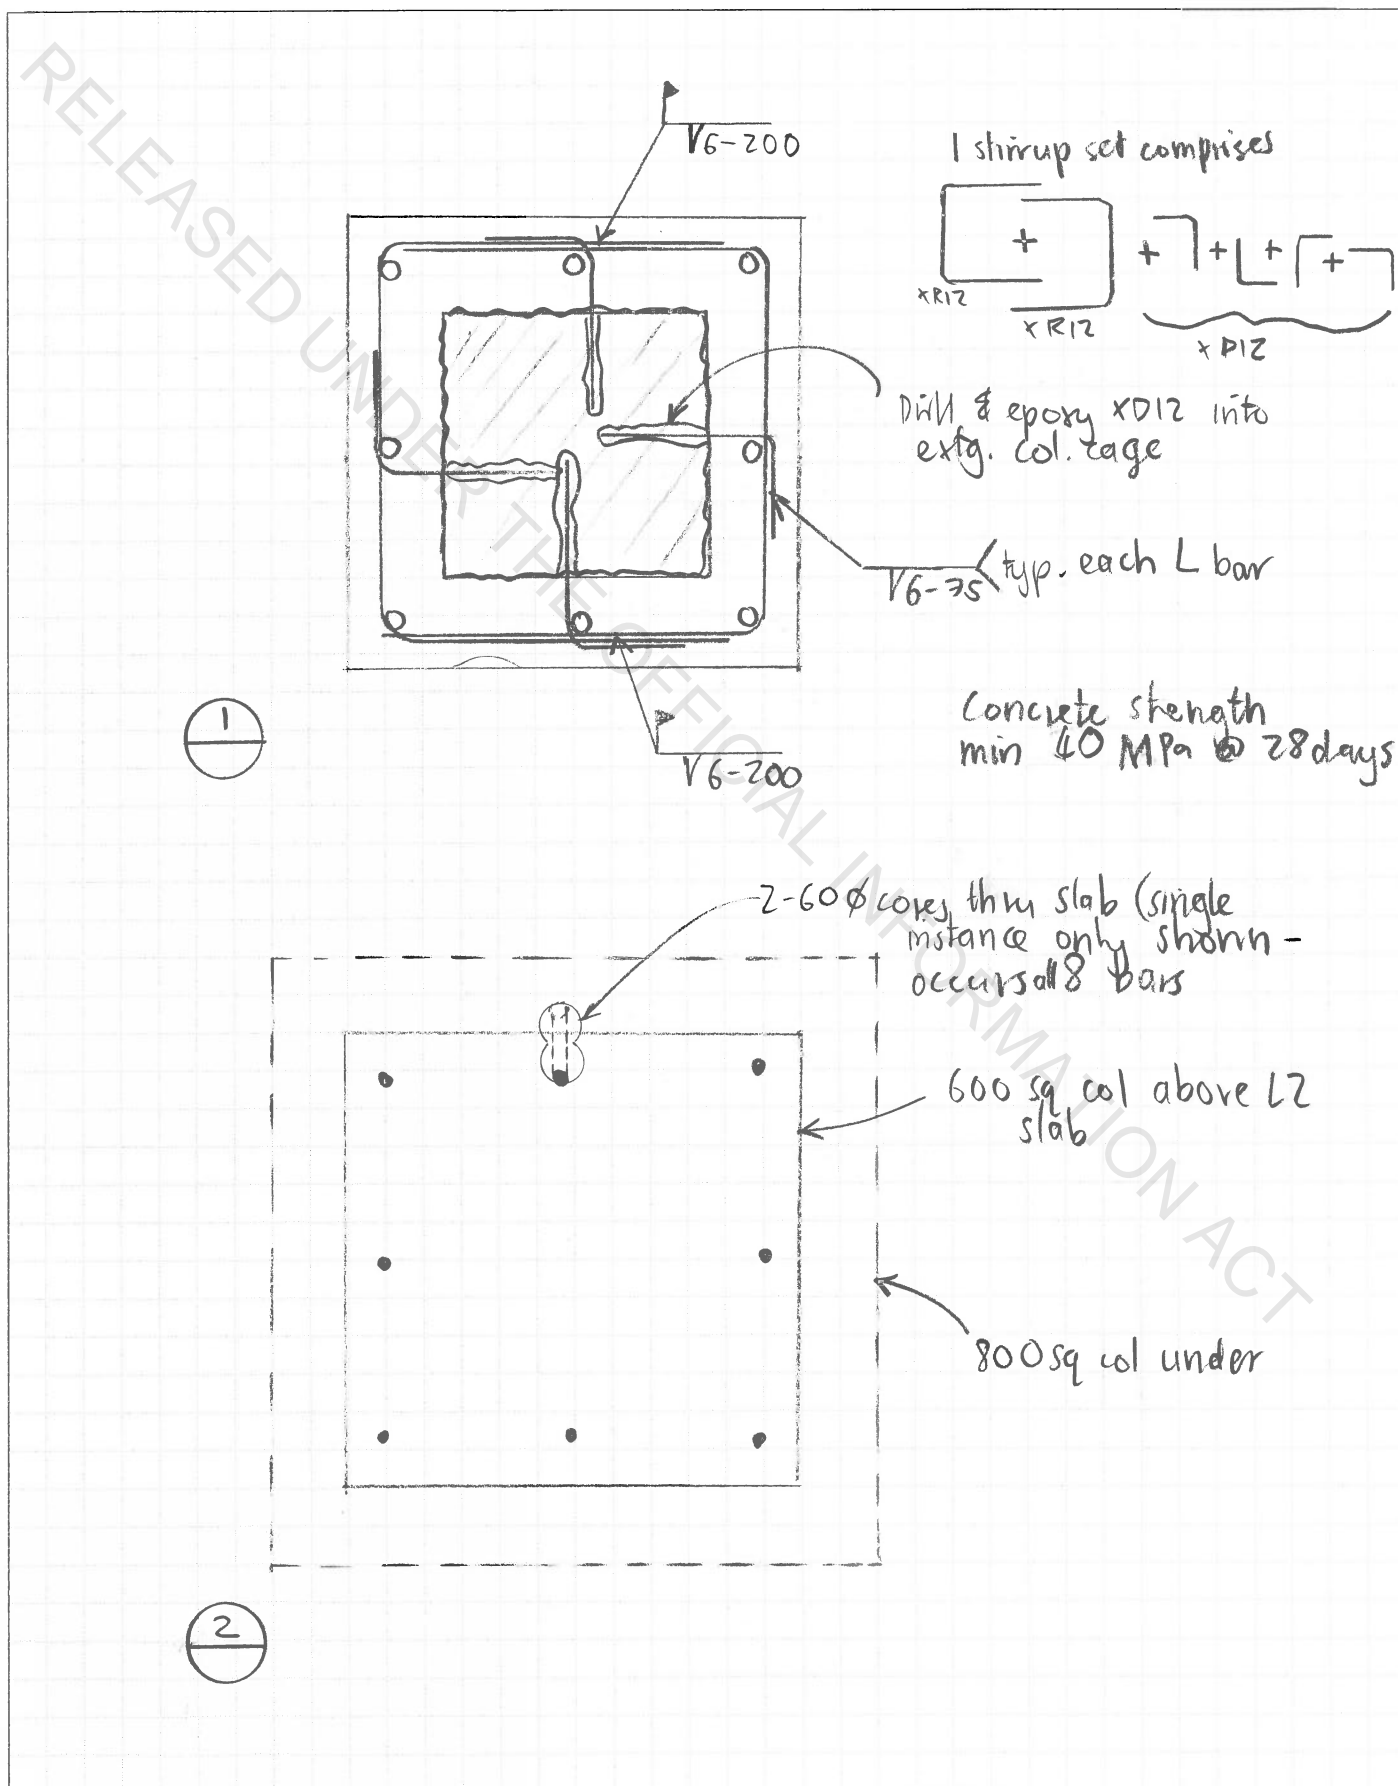 RELEASED UNDER THE OFFICIAL INFORMATION ACT
V6-200
1 stirrup set comprises
+ + + + +
XR12
XR12
XD12
Drill & epoxy XD12 into
extg. col. cage
V6-75 typ. each L bar
Concrete strength
min 40 MPa @ 28 days
V6-200
1
2-60ϕ cores thru slab (single
instance only shown -
occurs all 8 bars
600 sq col above L2
slab
800 sq col under
2